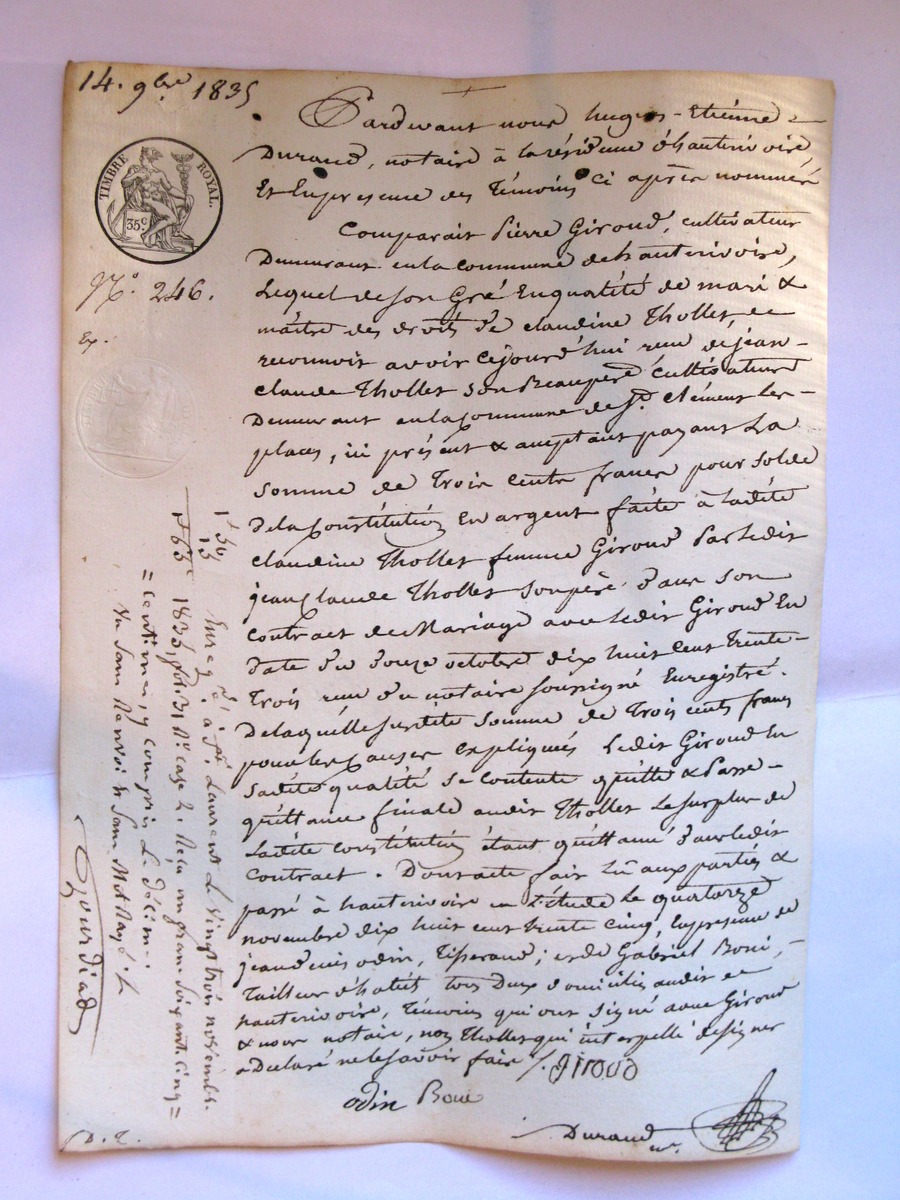 14. 9bre 1835
TIMBRE ROYAL.
35 c.
N.° 246.
Ex.
Pardevant nous hugues-Etienne
Durand, notaire à la résidence d'hauterivoire
Et En présence des témoins ci après nommés
Comparait Pierre Giroud, cultivateur
Demeurant en la commune de hauterivoire,
Lequel de son Gré En qualité de mari &
maître des droits de claudine Thollet, a
reconnu avoir cejourd'hui reçu de jean-
claude Thollet son Beaupère cultivateur
Demeurant en la commune de St. Clément Les-
places, ici présent & acceptant payant La
somme de trois cents francs pour solde
de la Constitution En argent faite à ladite
claudine Thollet femme Giroud Par Ledit
jean Claude Thollet son père dans son
contract de Mariage avec Ledit Giroud En
date du douze octobre dix huit cent trente-
trois reçu du notaire soussigné Enregistré.
De laquelle susdite somme de trois cents francs
pour les causes Expliquées Ledit Giroud En
sadite qualité se contente quitte & Passe
quittance finale audit Thollet Le surplus de
Ladite constitution étant quittancé dans Ledit
Contract. Dont acte fait lû aux parties &
passé à hauterivoire en l'étude Le quatorze
novembre dix huit cent trente cinq, En présence de
jean denis odin, Tisserand; et de Gabriel Boui,
Tailleur d'habits tous Deux domiciliés audit
hauterivoire, témoins qui ont signé avec Giroud
& nous notaire, non Thollet qui interpellé de signer
a Déclaré ne le savoir faire /. Giroud
odin Boui
Durand nre.
1f 50
15
1f 65c
Enreg.é à St. Laurent Le vingt trois novembre
1835, fol. 31 R.° case 2. Reçu un franc soixante cinq =
= centimes, y compris Le décime.
Vu sans Renvoi ni sans Mot Rayé.